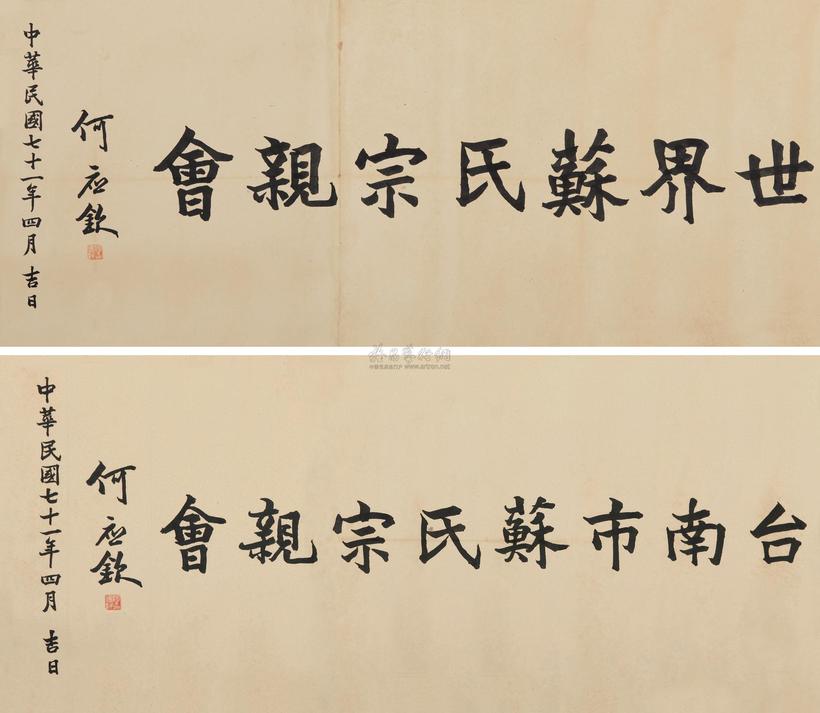 世界蘇氏宗親會
何應欽
中華民國七十一年四月吉日
台南市蘇氏宗親會
何應欽
中華民國七十一年四月吉日
www.artron.net